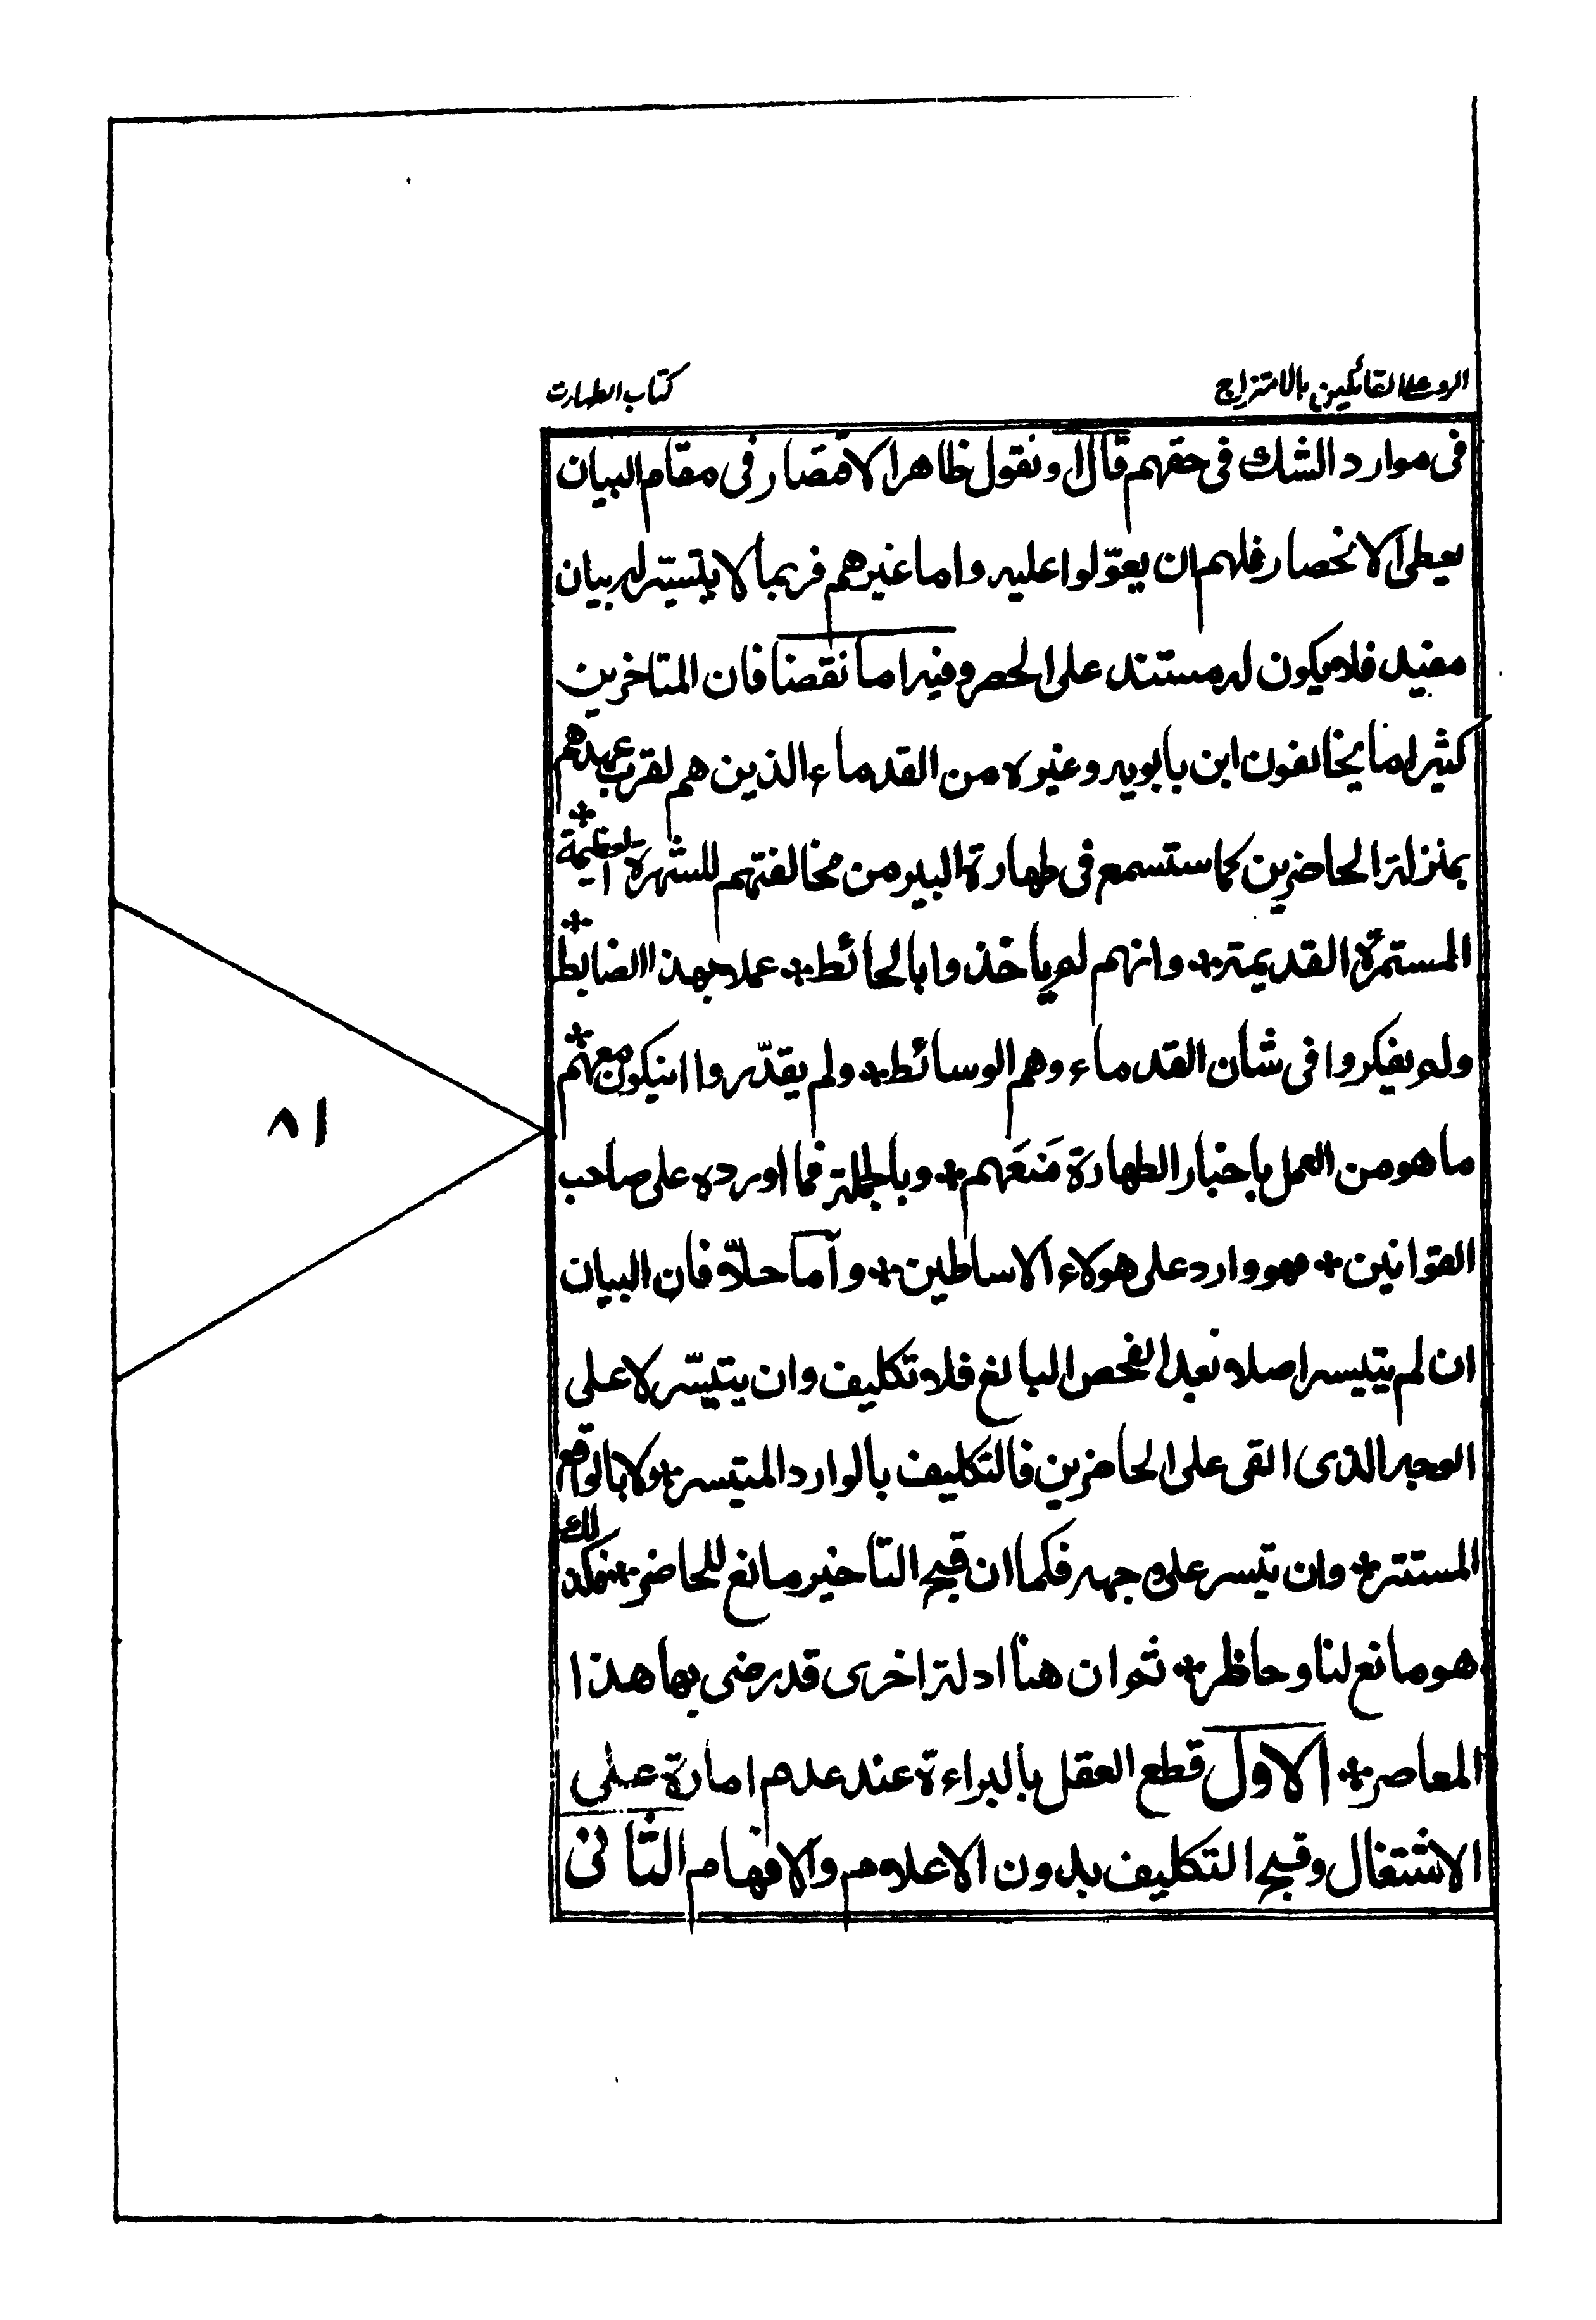 الرد على القائلين بالامتزاج
كتاب الطهارت
فى موارد الشك فى حقهم قال او نقول ظاهر الاقتصار فى مقام البيان
يعطى الانحصار فلهم ان يعوّلوا عليه واما غيرهم فربما لا يتيسّر له بيان
مفيد فلا يكون له مستند على الحصر وفيه اما نقضا فان المتاخرين
كثيرا ما يخالفون ابن بابويه وغيره من القدماء الذين هم لقرب عهدهم
بمنزلة الحاضرين كما ستسمع فى طهارة البير من مخالفتهم للشهرة العظيمة *
المستمرّة القديمة * وانهم لم ياخذوا بالحائط * عملا بهذا الضابط *
ولم يفكروا فى شان القدماء وهم الوسائط * ولم يقدّروا ان يكون معهم *
ما هو من العمل باخبار الطهارة مَنعَهم * وبالجملة فما اورده على صاحب
القوانين * فهو وارد على هولاء الاساطين * وآما حلاّ فان البيان
ان لم يتيسر اصلا بعد الفحص البالغ فلا تكليف وان يتيسّر لا على
الوجه الذى القى على الحاضرين فالتكليف بالوارد المتيسر * ولا بالواقع
المستتر * وان تيسر على وجهه فكما ان قبح التاخير مانع للحاضر * فكذلك
هو مانع لنا وحاظر * ثم ان هنا ادلة اخرى قد رضى بها هذا
المعاصر * الاول قطع العقل بالبراءة عند عدم امارة على
الاشتغال وقبح التكليف بدون الاعلام والافهام الثانى
٨١